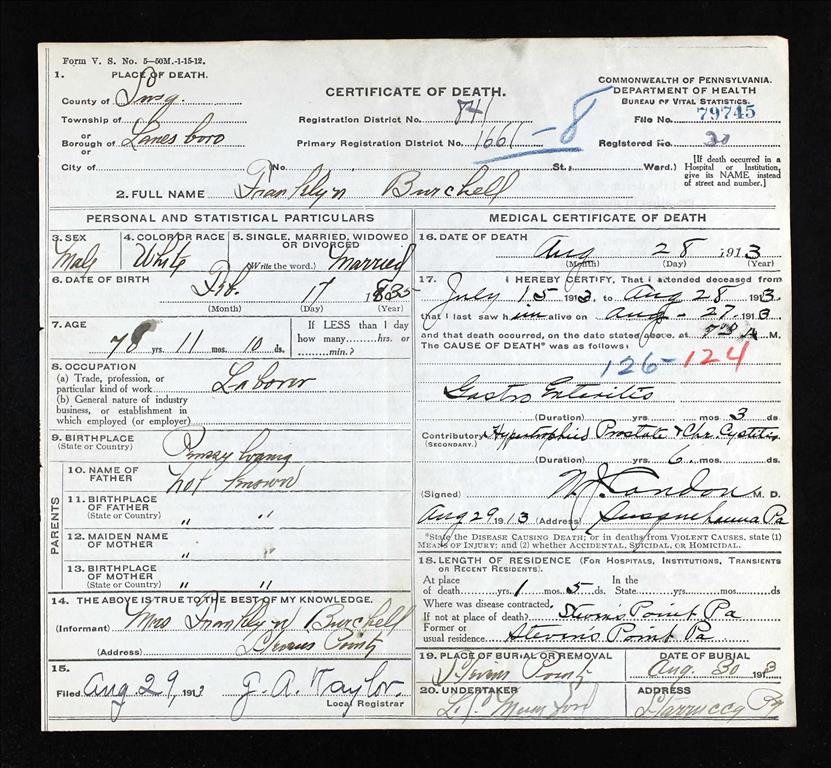 Form V. S. No. 5—50M.-1-15-12.
1. PLACE OF DEATH.
County of Susq.
Township of
or
Borough of Lanesboro
or
City of
CERTIFICATE OF DEATH.
Registration District No. 841
Primary Registration District No. 1661-8
COMMONWEALTH OF PENNSYLVANIA.
DEPARTMENT OF HEALTH
BUREAU OF VITAL STATISTICS.
File No. 79745
Registered No. 20
No. , St., Ward.)
[If death occurred in a
Hospital or Institution,
give its NAME instead
of street and number.]
2. FULL NAME Franklyn Burchell
PERSONAL AND STATISTICAL PARTICULARS
3. SEX
Male
4. COLOR OR RACE
White
5. SINGLE, MARRIED, WIDOWED
OR DIVORCED
(Write the word.) Married
6. DATE OF BIRTH
Feb. 17 1835
(Month) (Day) (Year)
7. AGE
78 yrs. 11 mos. 10 ds.
If LESS than 1 day
how many hrs. or
min.?
8. OCCUPATION
(a) Trade, profession, or
particular kind of work Laborer
(b) General nature of industry
business, or establishment in
which employed (or employer)
9. BIRTHPLACE
(State or Country) Pennsylvania
PARENTS
10. NAME OF
FATHER not known
11. BIRTHPLACE
OF FATHER
(State or Country) " "
12. MAIDEN NAME
OF MOTHER "
13. BIRTHPLACE
OF MOTHER
(State or Country) " "
14. THE ABOVE IS TRUE TO THE BEST OF MY KNOWLEDGE.
(Informant) Mrs Franklyn Burchell
(Address) Point
15.
Filed Aug 29, 1913 J. A. Taylor.
Local Registrar
MEDICAL CERTIFICATE OF DEATH
16. DATE OF DEATH
Aug 28 1913
(Month) (Day) (Year)
17. I HEREBY CERTIFY, That I attended deceased from
July 15 1913 to Aug 28 1913.
that I last saw him alive on Aug - 27 1913
and that death occurred, on the date stated above, at M.
The CAUSE OF DEATH* was as follows:
126-124
Gastro Enteritis
(Duration) yrs. mos 3 ds.
Contributory Hypertrophied Prostate & Chr. Cystitis
(SECONDARY.)
(Duration) yrs. 6 mos. ds.
(Signed) Condon M. D.
Aug 29 1913 (Address) Susquehanna Pa
*State the DISEASE CAUSING DEATH; or in deaths from VIOLENT CAUSES, state (1)
MEANS OF INJURY; and (2) whether ACCIDENTAL, SUICIDAL, OR HOMICIDAL.
18. LENGTH OF RESIDENCE (FOR HOSPITALS, INSTITUTIONS, TRANSIENTS
OR RECENT RESIDENTS).
At place
of death yrs. 1 mos. 5 ds.
In the
State yrs. mos. ds.
Where was disease contracted,
If not at place of death? Stevens Point Pa
Former or
usual residence Stevens Point Pa
19. PLACE OF BURIAL OR REMOVAL
Stevens Point
DATE OF BURIAL
Aug. 30 1913
20. UNDERTAKER
ADDRESS